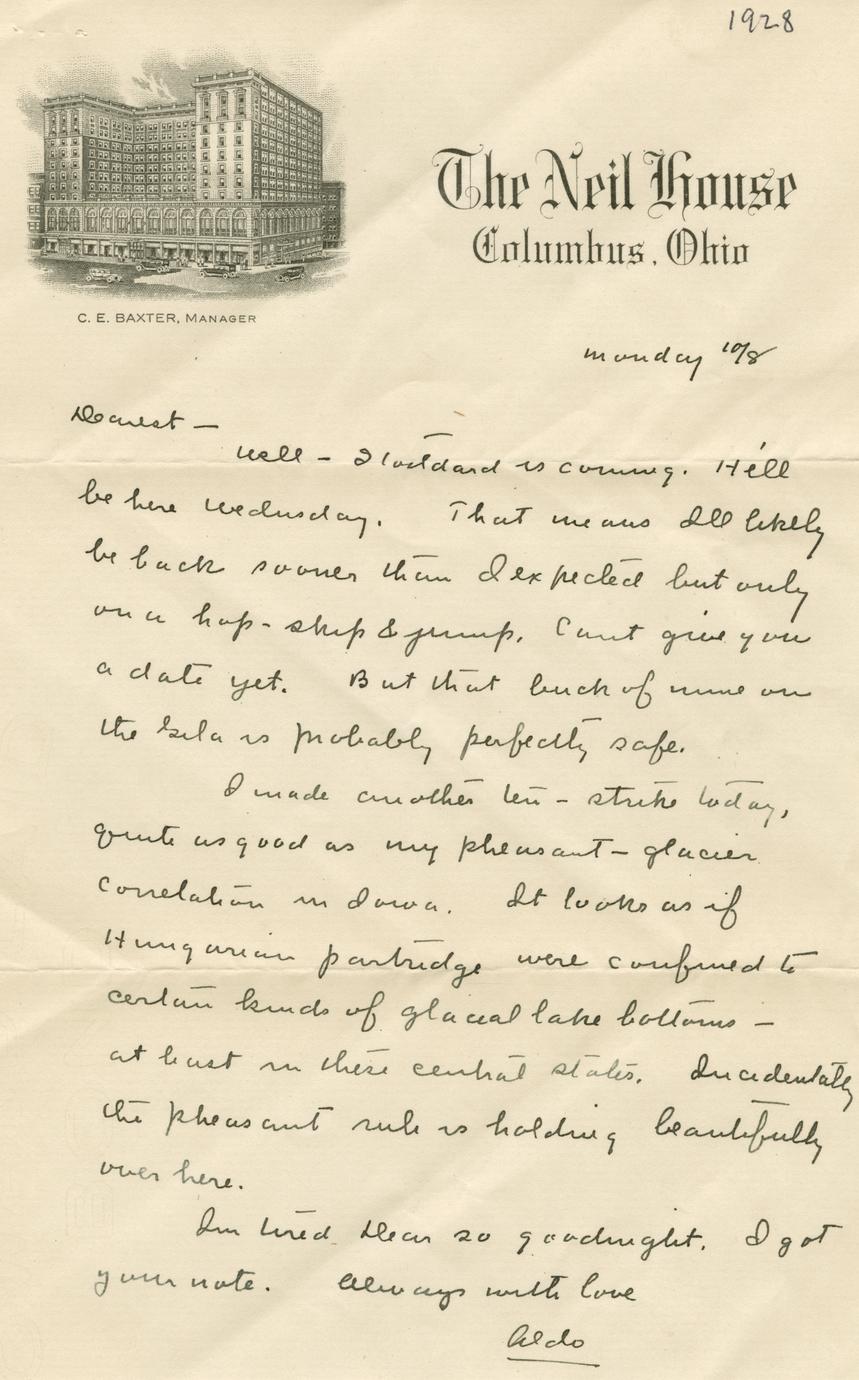 1928
The Neil House
Columbus, Ohio
C. E. BAXTER, MANAGER
Monday 10/8
Dearest —
Well – Stoddard is coming. He'll
be here Wednesday. That means Ill likely
be back sooner than I expected but only
on a hop-skip & jump. Cant give you
a date yet. But that buck of mine on
the Gila is probably perfectly safe.
I made another ten-strike today,
quite as good as my pheasant-glacier
correlation in Iowa. It looks as if
Hungarian partridge were confined to
certain kinds of glacial lake bottoms –
at least in these central states. Incidentally
the pheasant rule is holding beautifully
over here.
Im tired Dear so goodnight. I got
your note. Always with love
Aldo